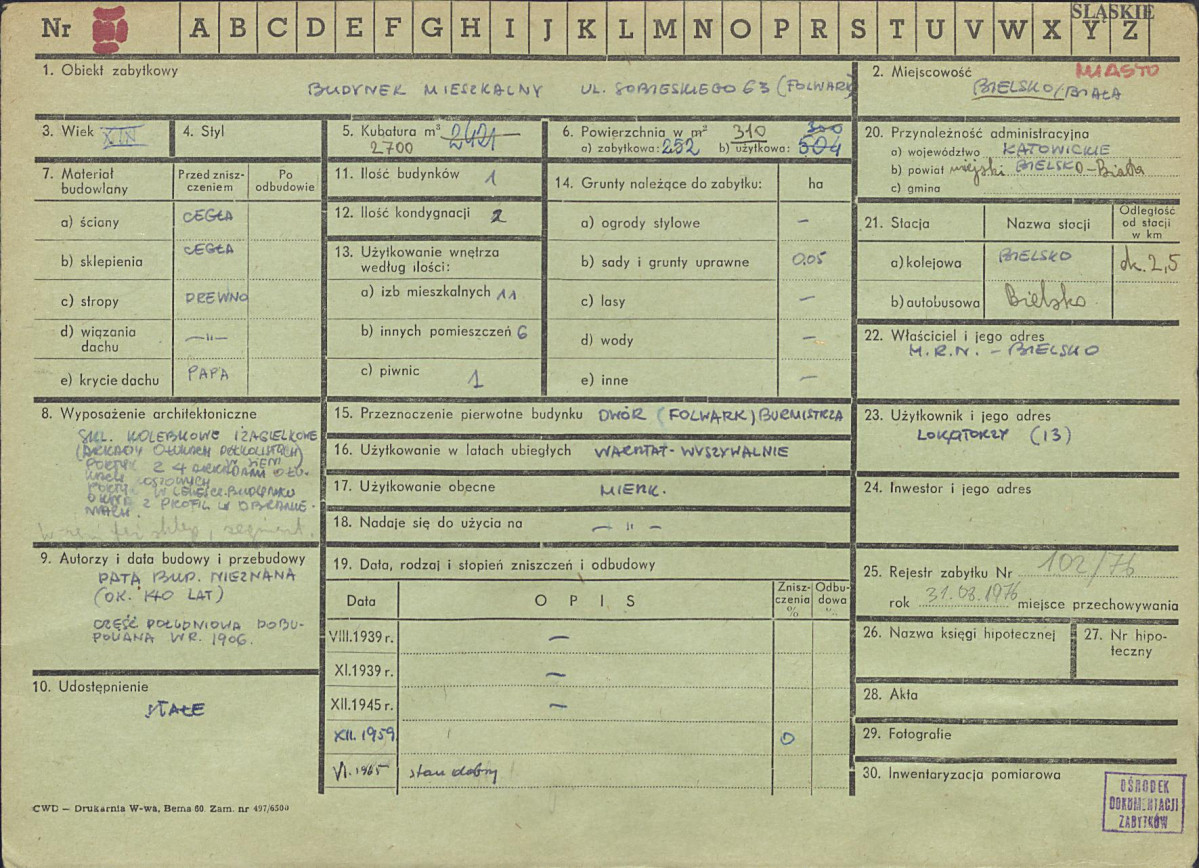 ŚLĄSKIE
Nr A B C D E F G H I J K L M N O P R S T U V W X Y Z
1. Obiekt zabytkowy
BUDYNEK MIESZKALNY UL. SOBIESKIEGO 63 (FOLWARK)
2. Miejscowość MIASTO
BIELSKO/BIAŁA
3. Wiek XIX
4. Styl
5. Kubatura m³ 2421
2700
6. Powierzchnia w m² 310 300
a) zabytkowa: 252 b) użytkowa: 504
7. Materiał budowlany
Przed znisz-
czeniem
Po
odbudowie
a) ściany CEGŁA
b) sklepienia CEGŁA
c) stropy DREWNO
d) wiązania
dachu —"—
e) krycie dachu PAPA
8. Wyposażenie architektoniczne
SKL. KOLEBKOWE I ŻAGIELKOWE
PORTYK Z 4 ARKADAMI
9. Autorzy i data budowy i przebudowy
DATA BUD. NIEZNANA
(OK. 140 LAT)
CZĘŚĆ POŁUDNIOWA DOBU-
DOWANA W R. 1906.
10. Udostępnienie
STAŁE
11. Ilość budynków 1
12. Ilość kondygnacji 2
13. Użytkowanie wnętrza
według ilości:
a) izb mieszkalnych 11
b) innych pomieszczeń 6
c) piwnic 1
14. Grunty należące do zabytku: ha
a) ogrody stylowe —
b) sady i grunty uprawne 0.05
c) lasy —
d) wody —
e) inne —
15. Przeznaczenie pierwotne budynku DWÓR (FOLWARK) BURMISTRZA
16. Użytkowanie w latach ubiegłych WARSTAT-WYSZYWALNIE
17. Użytkowanie obecne MIESZK.
18. Nadaje się do użycia na — " —
19. Data, rodzaj i stopień zniszczeń i odbudowy
Data O P I S
Znisz-
czenia
%
Odbu-
dowa
%
VIII.1939 r. —
XI.1939 r. —
XII.1945 r. —
XII.1959 0
VI.1965 stan dobry
20. Przynależność administracyjna
a) województwo KATOWICKIE
b) powiat miejski BIELSKO-Biała
c) gmina
21. Stacja Nazwa stacji
Odległość
od stacji
w km
a) kolejowa BIELSKO ok. 2,5
b) autobusowa Bielsko
22. Właściciel i jego adres
M.R.N. - BIELSKO
23. Użytkownik i jego adres
LOKATORZY (13)
24. Inwestor i jego adres
25. Rejestr zabytku Nr 102/76
rok 31.08.1976 miejsce przechowywania
26. Nazwa księgi hipotecznej
27. Nr hipo-
teczny
28. Akta
29. Fotografie
30. Inwentaryzacja pomiarowa
OŚRODEK
DOKUMENTACJI
ZABYTKÓW
CWD — Drukarnia W-wa, Bema 60. Zam. nr 497/6500